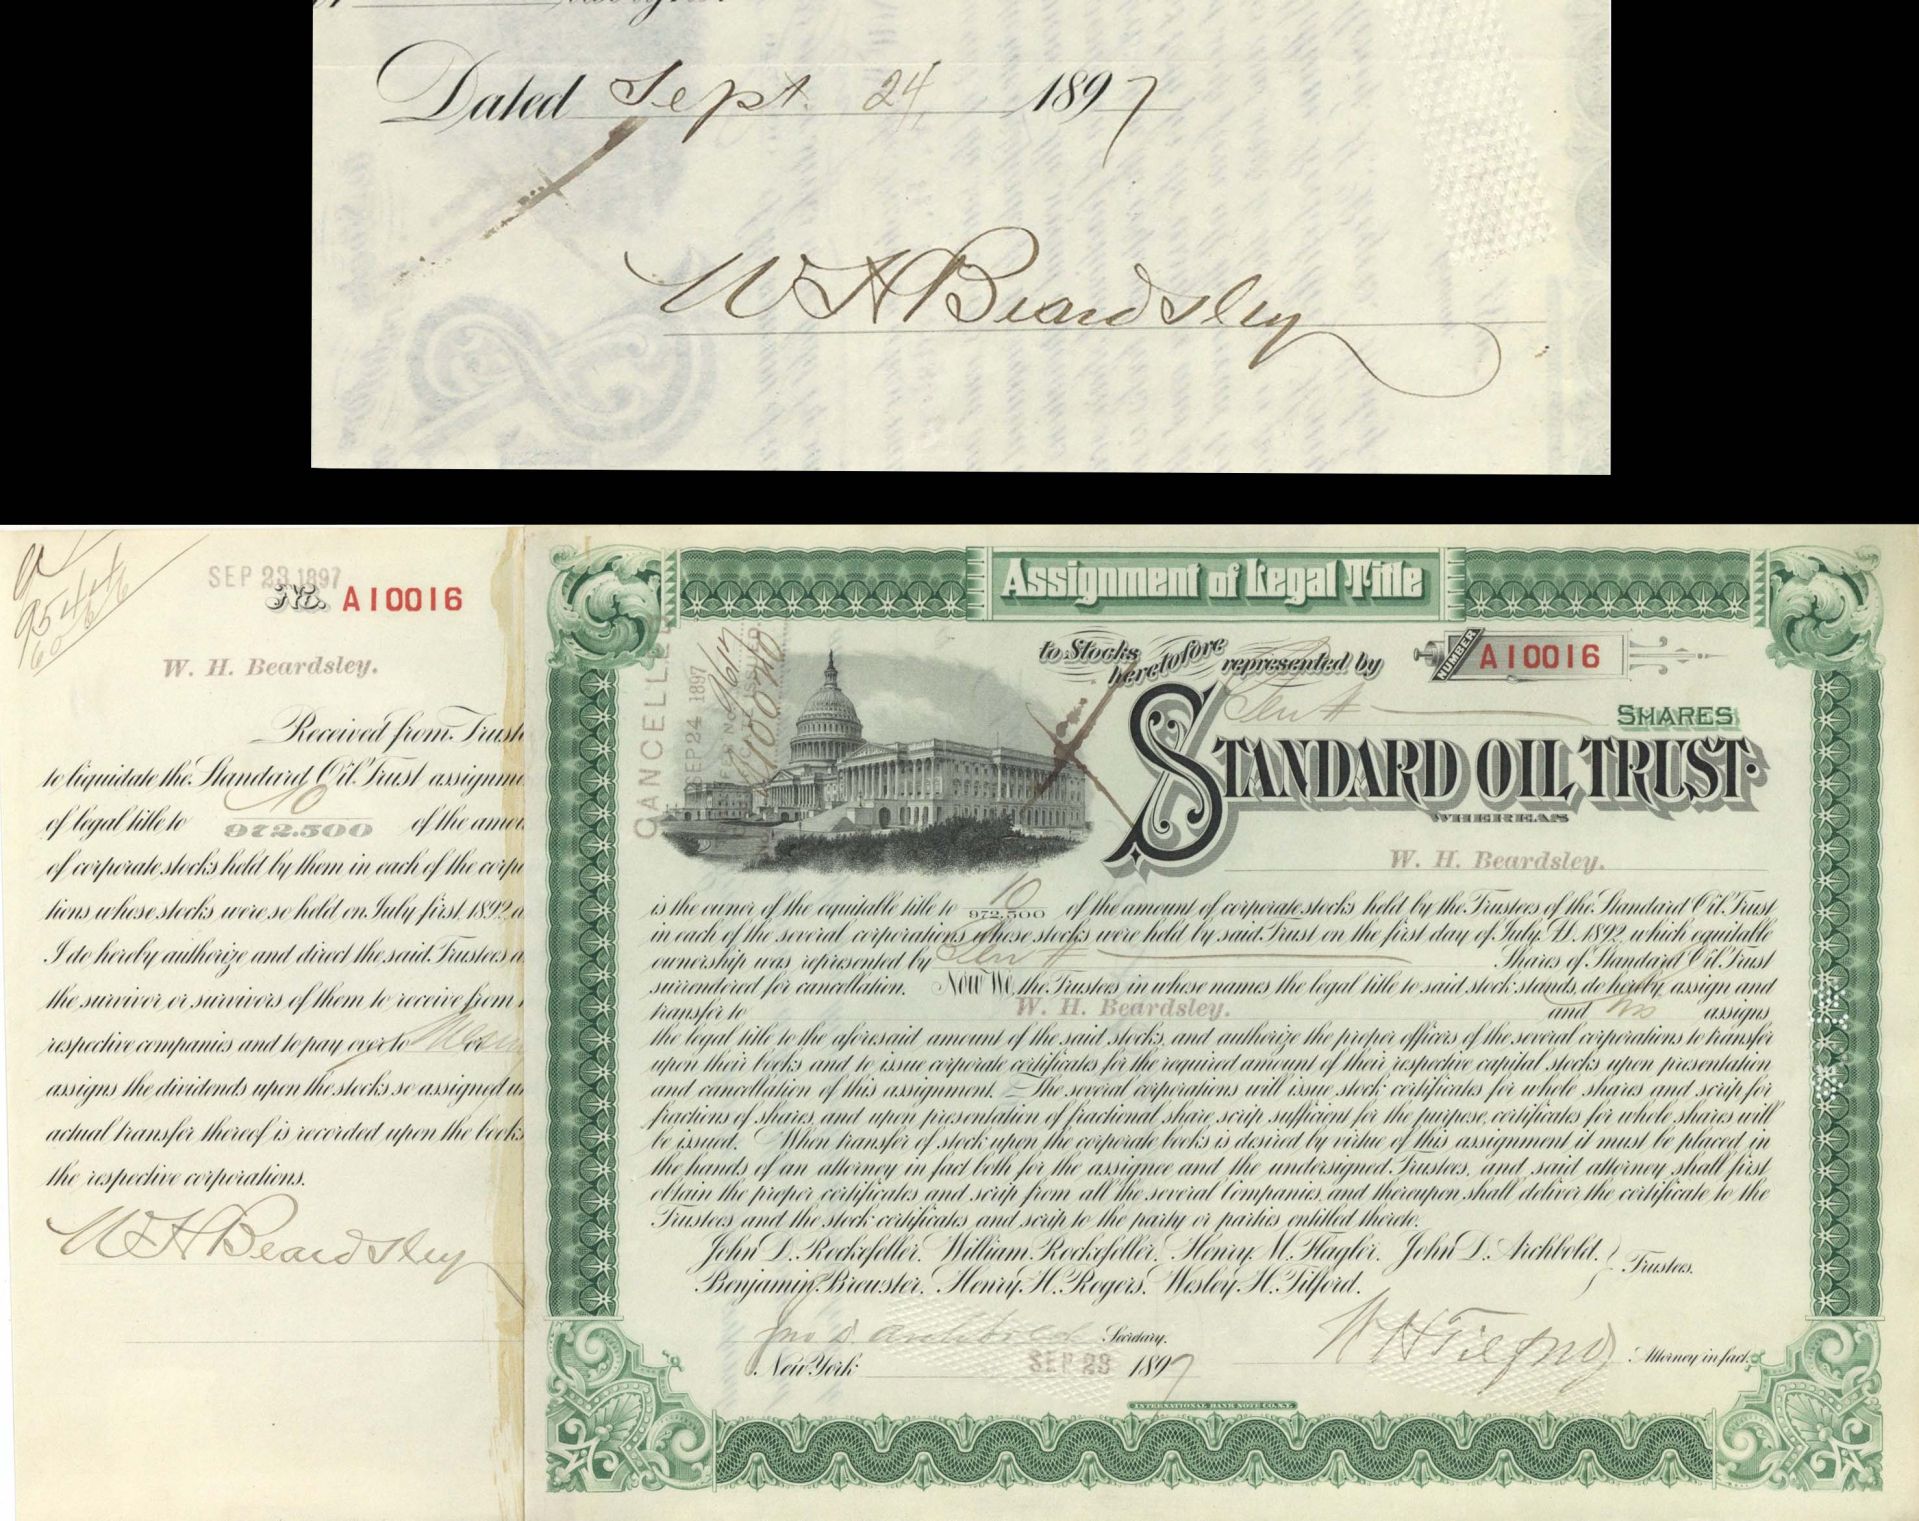 Dated Sept. 24, 1897
W H Beardsley
SEP 23 1897
No. A10016
W. H. Beardsley.
Received from Trust
to liquidate the Standard Oil Trust assignme
of legal title to 10/972.500 of the amou
of corporate stocks held by them in each of the corp
tions whose stocks were so held on July first, 1892, a
I do hereby authorize and direct the said Trustees a
the survivor or survivors of them to receive from
respective companies and to pay over to
assigns the dividends upon the stocks so assigned un
actual transfer thereof is recorded upon the books
the respective corporations.
W H Beardsley
Assignment of Legal Title
to Stocks heretofore represented by
NUMBER A10016
CANCELLED
SEP 24 1897
Ten SHARES
STANDARD OIL TRUST.
WHEREAS
W. H. Beardsley.
is the owner of the equitable title to 10/972,500 of the amount of corporate stocks held by the Trustees of the Standard Oil Trust
in each of the several corporations whose stocks were held by said Trust on the first day of July A.D. 1892, which equitable
ownership was represented by Ten Shares of Standard Oil Trust
surrendered for cancellation. Now We, the Trustees in whose names the legal title to said stock stands, do hereby assign and
transfer to W. H. Beardsley. and his assigns
the legal title to the aforesaid amount of the said stocks, and authorize the proper officers of the several corporations to transfer
upon their books and to issue corporate certificates for the required amount of their respective capital stocks upon presentation
and cancellation of this assignment. The several corporations will issue stock certificates for whole shares and scrip for
fractions of shares, and upon presentation of fractional share scrip sufficient for the purpose, certificates for whole shares will
be issued. When transfer of stock upon the corporate books is desired by virtue of this assignment it must be placed in
the hands of an attorney in fact both for the assignee and the undersigned Trustees, and said attorney shall first
obtain the proper certificates and scrip from all the several Companies, and thereupon shall deliver the certificate to the
Trustees and the stock certificates and scrip to the party or parties entitled thereto.
John D. Rockefeller. William Rockefeller. Henry M. Flagler. John D. Archbold.
Benjamin Brewster. Henry H. Rogers. Wesley H. Tilford. Trustees.
Jno D Archbold Secretary.
W H Tilford Attorney in fact.
New York SEP 23 1897
INTERNATIONAL BANK NOTE CO. N.Y.